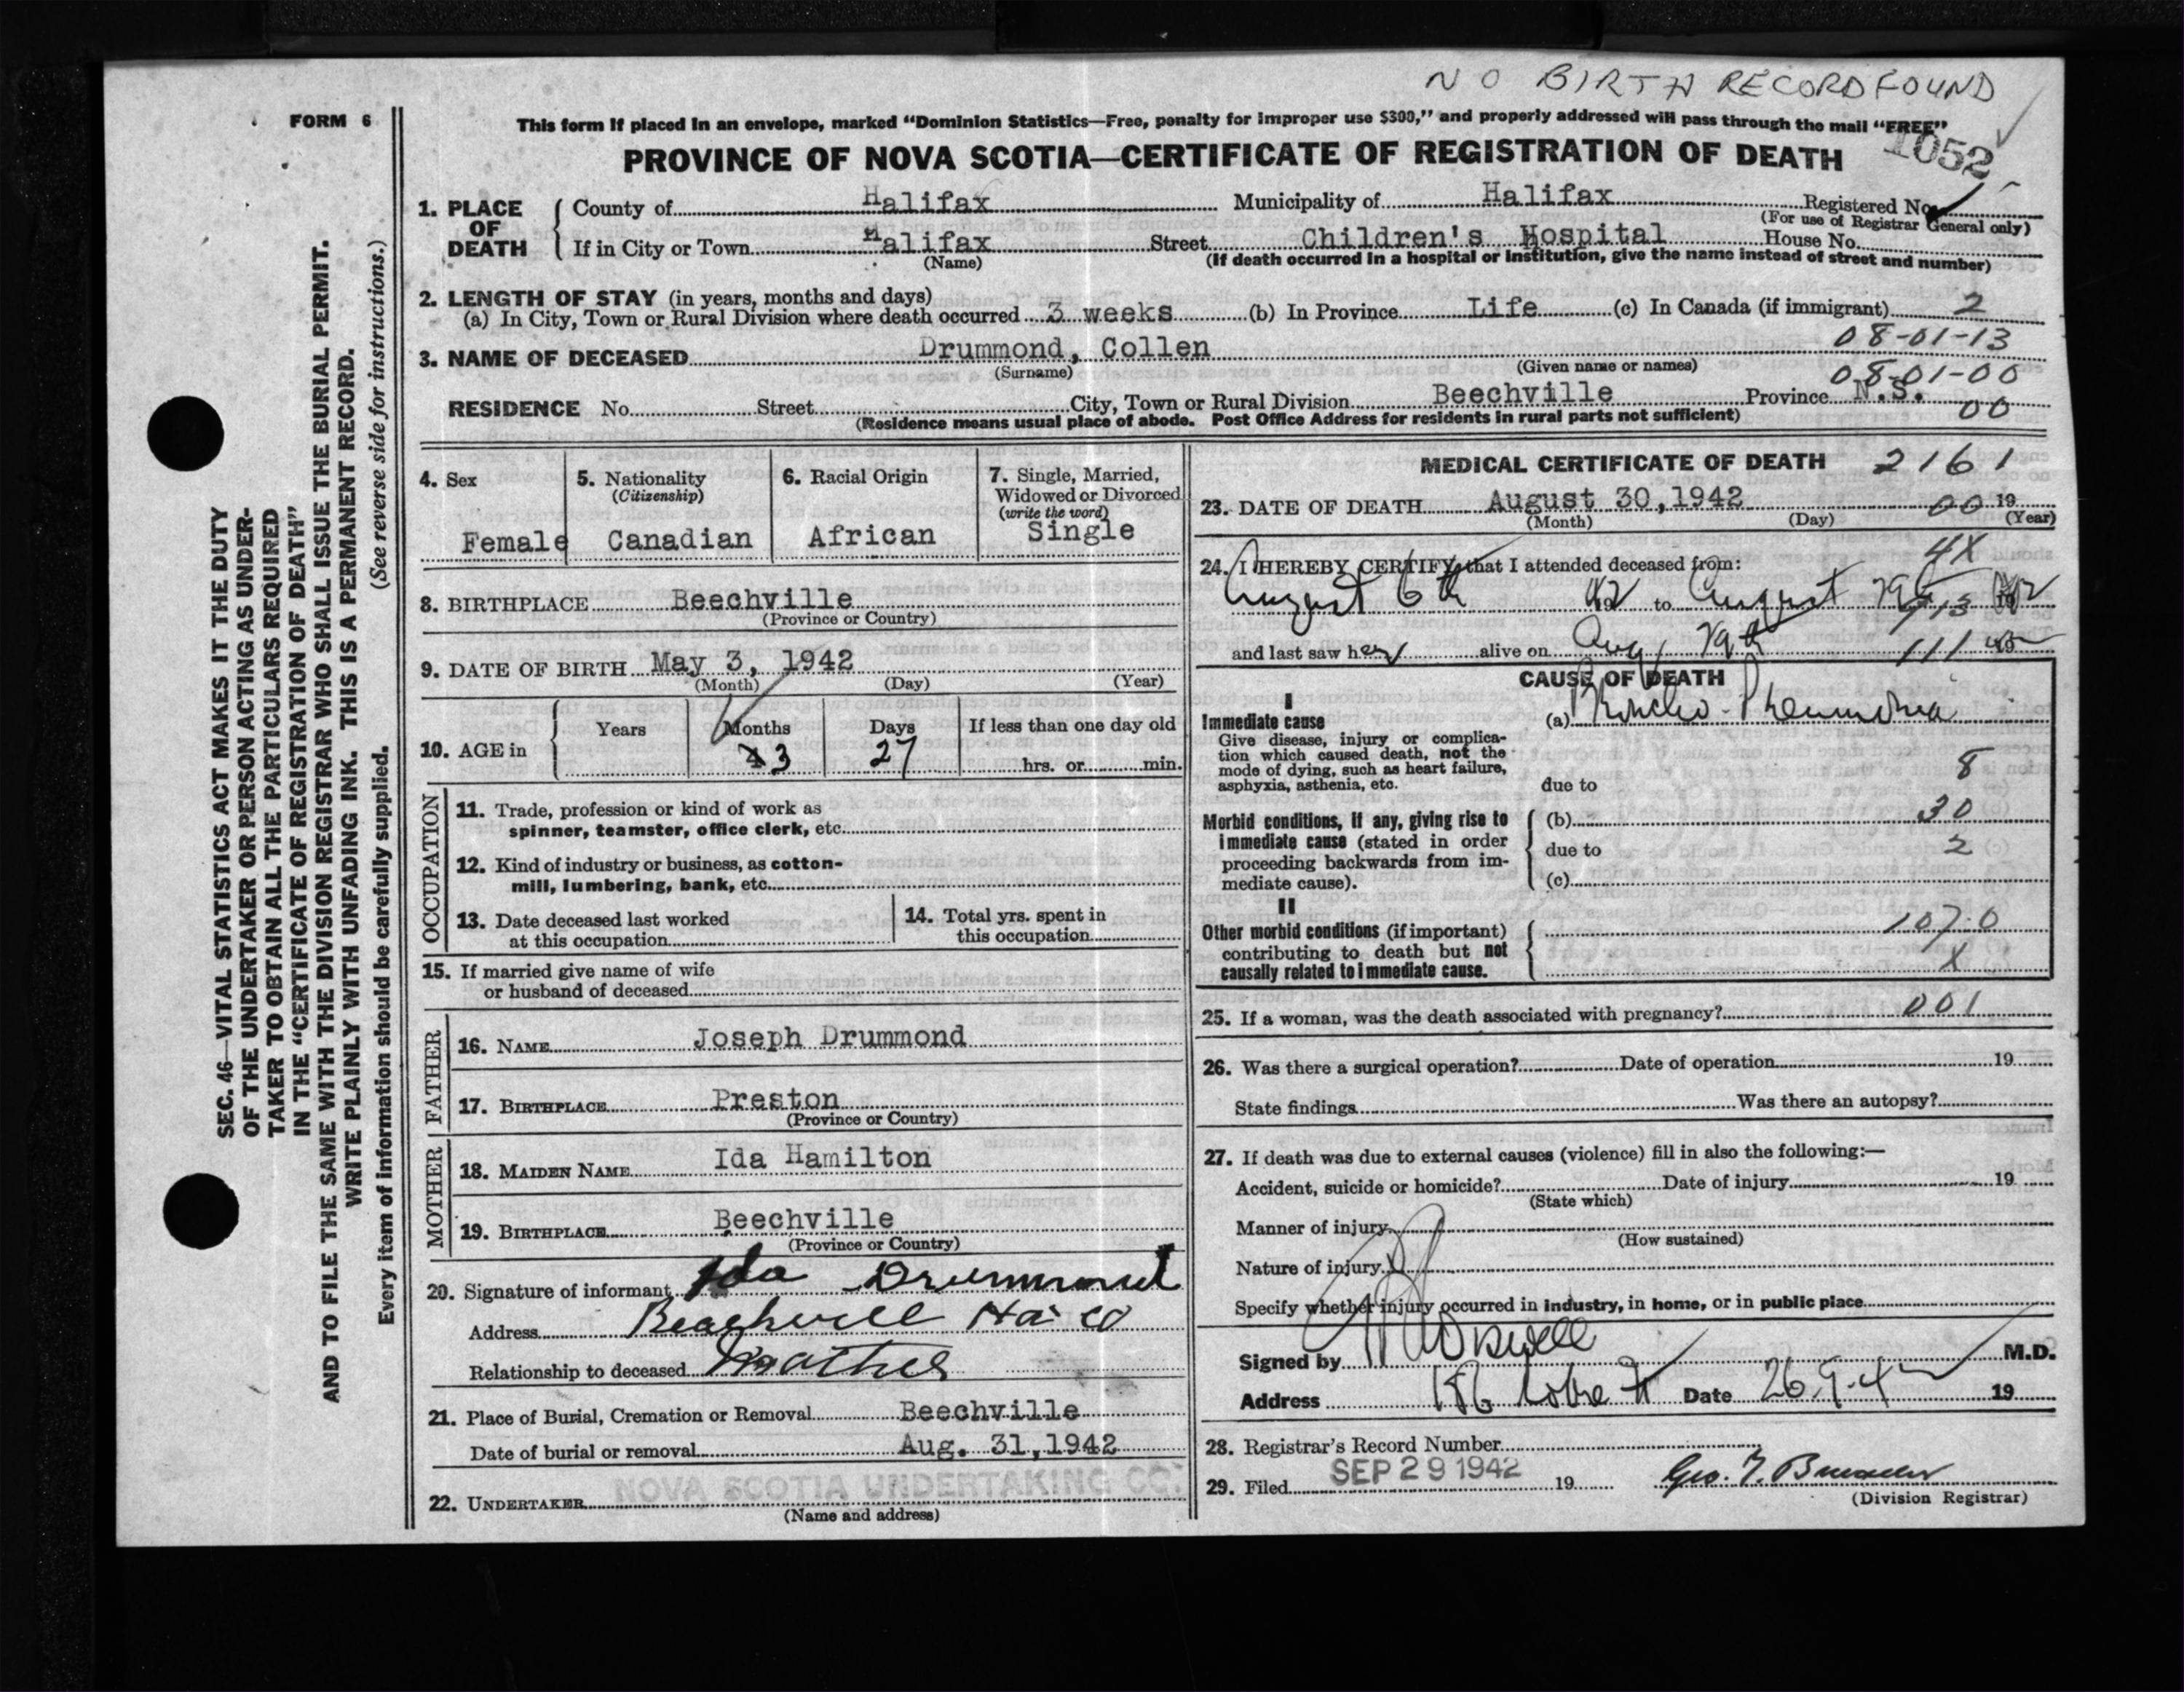 NO BIRTH RECORD FOUND
FORM 6
This form if placed in an envelope, marked “Dominion Statistics—Free, penalty for improper use $300,” and properly addressed will pass through the mail “FREE”
PROVINCE OF NOVA SCOTIA—CERTIFICATE OF REGISTRATION OF DEATH
1052
1. PLACE OF DEATH
County of Halifax Municipality of Halifax Registered No.
(For use of Registrar General only)
If in City or Town Halifax Street Children's Hospital House No.
(Name) (If death occurred in a hospital or institution, give the name instead of street and number)
2. LENGTH OF STAY (in years, months and days)
(a) In City, Town or Rural Division where death occurred 3 weeks (b) In Province Life (c) In Canada (if immigrant) 2
08-01-13
3. NAME OF DECEASED Drummond, Collen
(Surname) (Given name or names)
08-01-00
RESIDENCE No. Street City, Town or Rural Division Beechville Province N.S.
00
(Residence means usual place of abode. Post Office Address for residents in rural parts not sufficient)
4. Sex
Female
5. Nationality
(Citizenship)
Canadian
6. Racial Origin
African
7. Single, Married,
Widowed or Divorced
(write the word)
Single
8. BIRTHPLACE Beechville
(Province or Country)
9. DATE OF BIRTH May 3, 1942
(Month) (Day) (Year)
10. AGE in
Years Months Days If less than one day old
3 27 hrs. or min.
OCCUPATION
11. Trade, profession or kind of work as
spinner, teamster, office clerk, etc.
12. Kind of industry or business, as cotton-
mill, lumbering, bank, etc.
13. Date deceased last worked
at this occupation
14. Total yrs. spent in
this occupation
15. If married give name of wife
or husband of deceased
FATHER
16. NAME Joseph Drummond
17. BIRTHPLACE Preston
(Province or Country)
MOTHER
18. MAIDEN NAME Ida Hamilton
19. BIRTHPLACE Beechville
(Province or Country)
20. Signature of informant Ida Drummond
Address Beachville Ha co
Relationship to deceased Mother
21. Place of Burial, Cremation or Removal Beechville
Date of burial or removal Aug. 31, 1942
22. UNDERTAKER NOVA SCOTIA UNDERTAKING CO.
(Name and address)
MEDICAL CERTIFICATE OF DEATH 2161
23. DATE OF DEATH August 30, 1942 00 19
(Month) (Day) (Year)
4X
24. I HEREBY CERTIFY that I attended deceased from:
August 6th 1942 to August 29 1942
and last saw her alive on Aug 29th 111 1942
CAUSE OF DEATH
I
Immediate cause
Give disease, injury or complica-
tion which caused death, not the
mode of dying, such as heart failure,
asphyxia, asthenia, etc.
(a) Broncho-Pneumonia
8
due to
Morbid conditions, if any, giving rise to
immediate cause (stated in order
proceeding backwards from im-
mediate cause).
(b) 30
due to 2
(c)
II
Other morbid conditions (if important)
contributing to death but not
causally related to immediate cause.
107.0
X
25. If a woman, was the death associated with pregnancy? 001
26. Was there a surgical operation? Date of operation 19
State findings Was there an autopsy?
27. If death was due to external causes (violence) fill in also the following:—
Accident, suicide or homicide? Date of injury 19
(State which)
Manner of injury
(How sustained)
Nature of injury
Specify whether injury occurred in industry, in home, or in public place
Signed by M.D.
Address 186 Date 26.9.42 19
28. Registrar's Record Number
29. Filed SEP 29 1942 19
Geo.
(Division Registrar)
SEC. 46—VITAL STATISTICS ACT MAKES IT THE DUTY
OF THE UNDERTAKER OR PERSON ACTING AS UNDER-
TAKER TO OBTAIN ALL THE PARTICULARS REQUIRED
IN THE “CERTIFICATE OF REGISTRATION OF DEATH”
AND TO FILE THE SAME WITH THE DIVISION REGISTRAR WHO SHALL ISSUE THE BURIAL PERMIT.
WRITE PLAINLY WITH UNFADING INK. THIS IS A PERMANENT RECORD.
Every item of information should be carefully supplied. (See reverse side for instructions.)